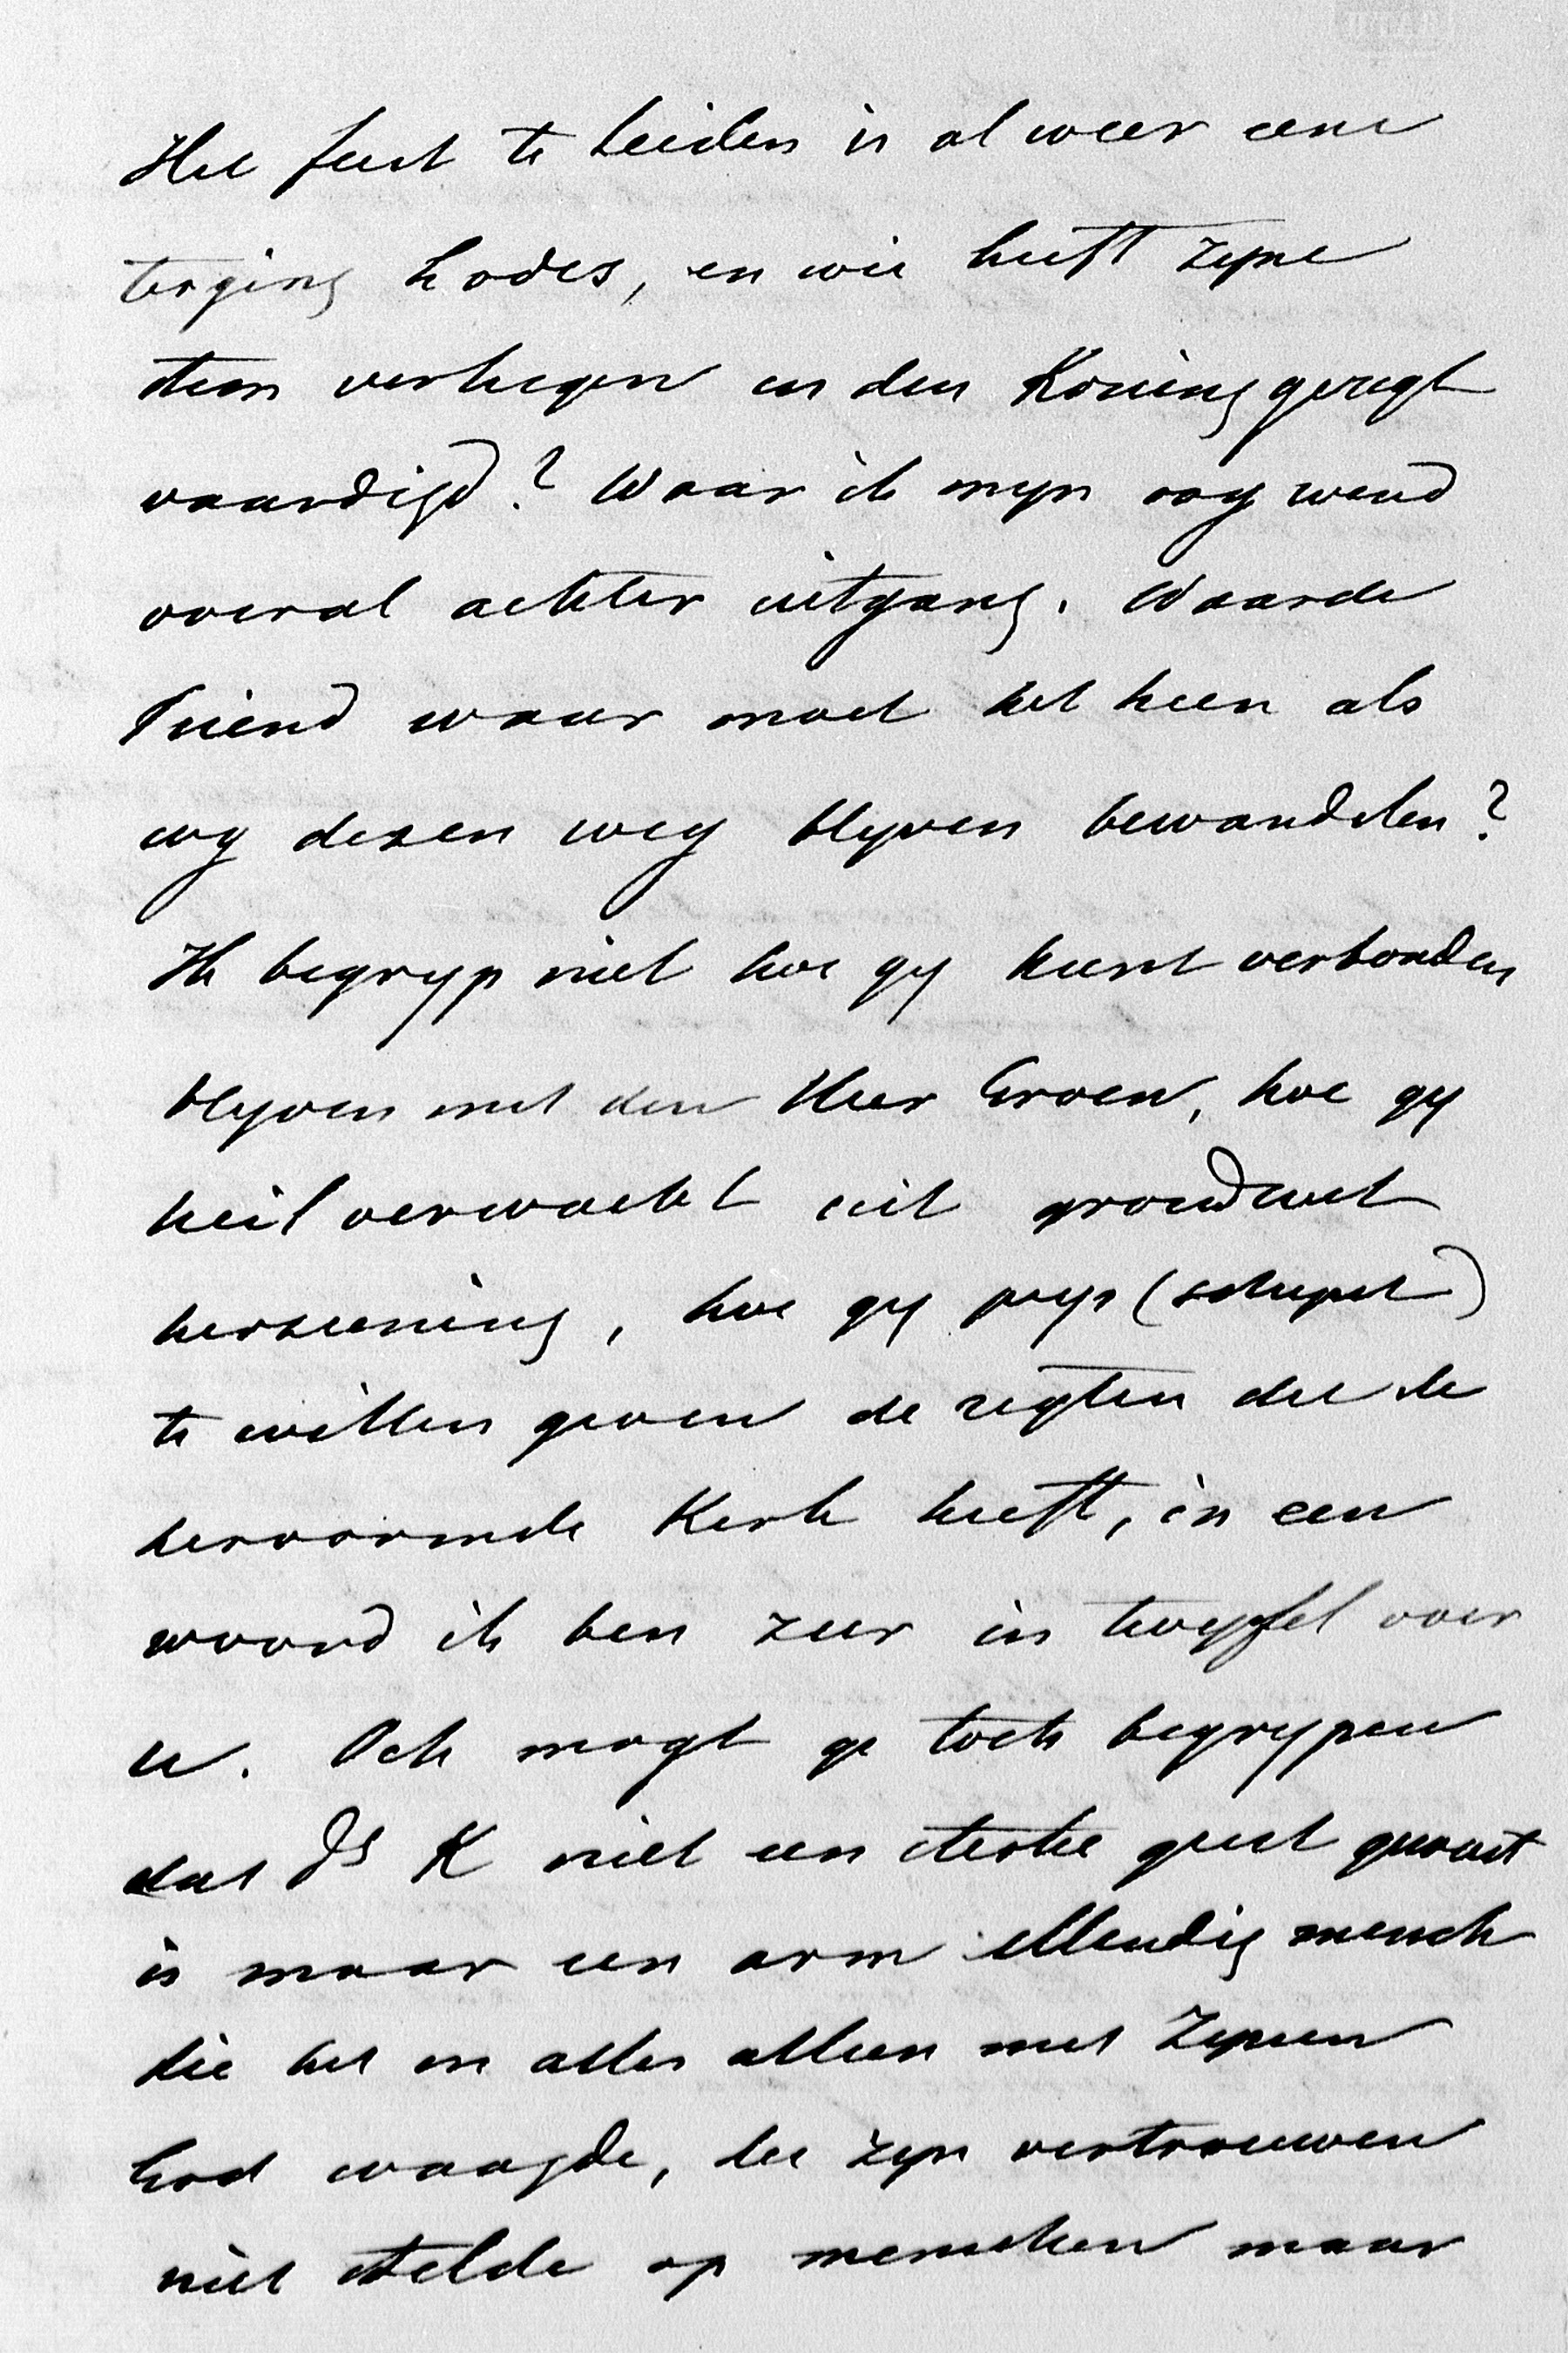 Het feest te Leiden is al weer eene
terging Godes, en wie heeft zyne
stem verhegen en den Koning geregt
vaardigd? Waar ik myn oog wend
overal achter uitgang. Waarde
Vriend waar moet het heen als
wy dezen weg blyven bewandelen?
Ik begryp niet hoe gy kunt verbonden
blyven met den Heer Groen, hoe gy
heil verwacht uit grondwet
herziening, hoe gy prys (schynt)
te willen geven de regten die de
hervormde Kerk heeft, in een
woord ik ben zeer in twyfel over
u. Och mogt ge toch begrypen
dat Ds K niet een sterke geest geweest
is maar een arm ellendig mensch
die het in alles alleen met Zynen
God waagde, die zyn vertrouwen
niet stelde op menschen maar